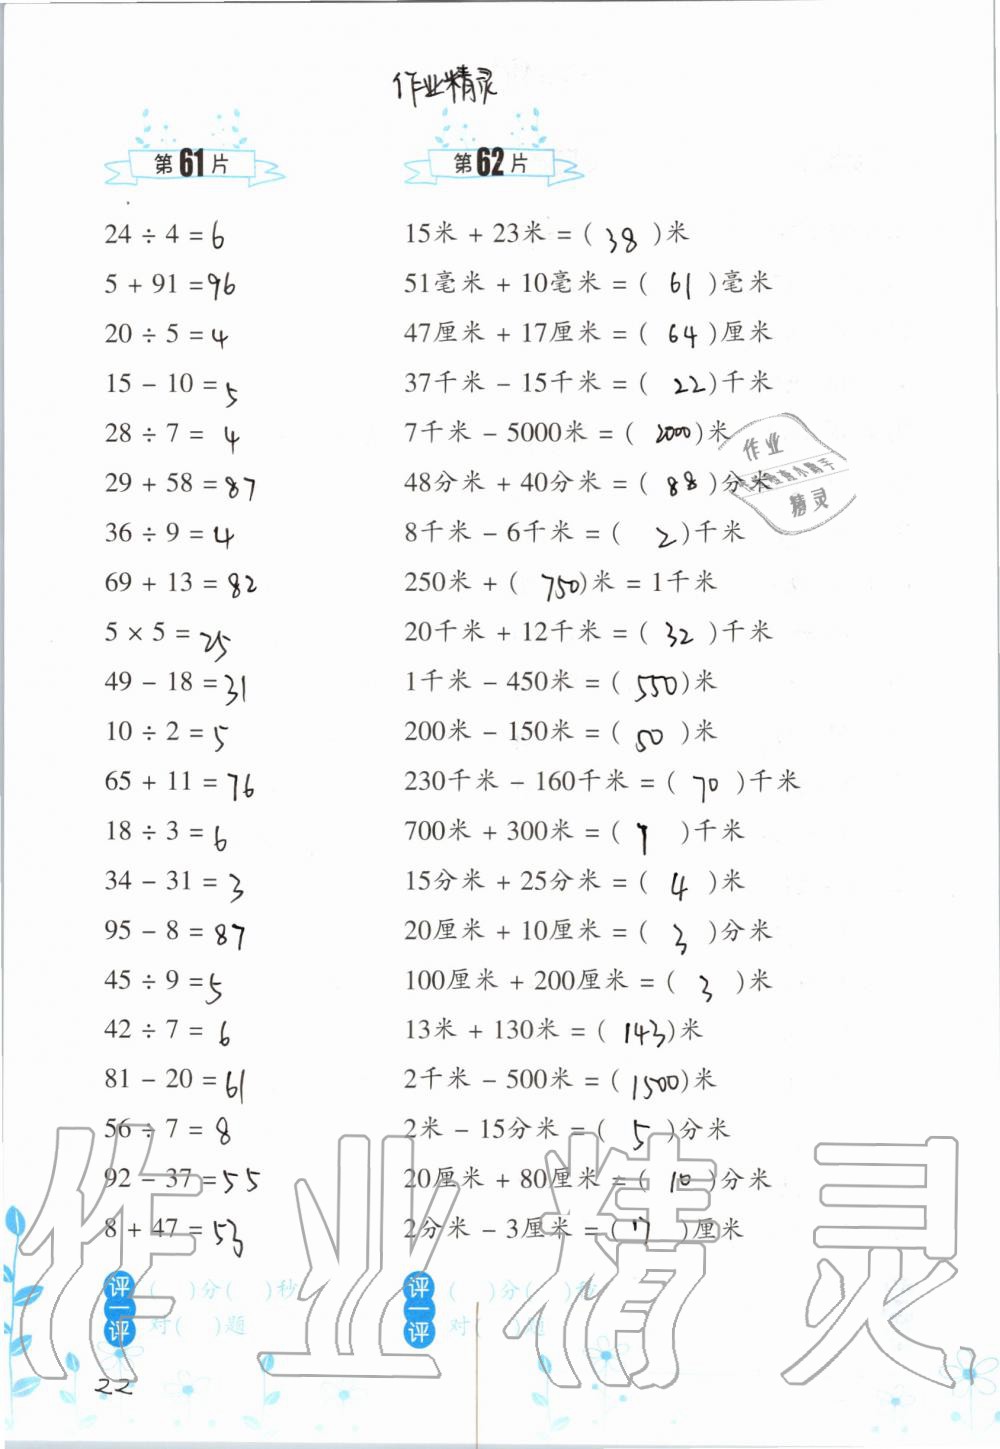 作业精灵
第61片
24 ÷ 4 = 6
5 + 91 = 96
20 ÷ 5 = 4
15 - 10 = 5
28 ÷ 7 = 4
29 + 58 = 87
36 ÷ 9 = 4
69 + 13 = 82
5 × 5 = 25
49 - 18 = 31
10 ÷ 2 = 5
65 + 11 = 76
18 ÷ 3 = 6
34 - 31 = 3
95 - 8 = 87
45 ÷ 9 = 5
42 ÷ 7 = 6
81 - 20 = 61
56 ÷ 7 = 8
92 - 37 = 55
8 + 47 = 53
评一评
( )分( )秒
对( )题
第62片
15米 + 23米 = ( 38 )米
51毫米 + 10毫米 = ( 61 )毫米
47厘米 + 17厘米 = ( 64 )厘米
37千米 - 15千米 = ( 22 )千米
7千米 - 5000米 = ( 2000 )米
48分米 + 40分米 = ( 88 )分米
8千米 - 6千米 = ( 2 )千米
250米 + ( 750 )米 = 1千米
20千米 + 12千米 = ( 32 )千米
1千米 - 450米 = ( 550 )米
200米 - 150米 = ( 50 )米
230千米 - 160千米 = ( 70 )千米
700米 + 300米 = ( 1 )千米
15分米 + 25分米 = ( 4 )米
20厘米 + 10厘米 = ( 3 )分米
100厘米 + 200厘米 = ( 3 )米
13米 + 130米 = ( 143 )米
2千米 - 500米 = ( 1500 )米
2米 - 15分米 = ( 5 )分米
20厘米 + 80厘米 = ( 10 )分米
2分米 - 3厘米 = ( 17 )厘米
评一评
( )分( )秒
对( )题
作业
精灵
作业精灵
22